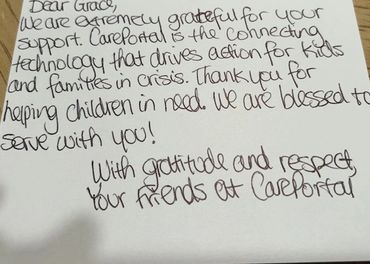 Dear Grace,
We are extremely grateful for your
support. CarePortal is the connecting
technology that drives action for kids
and families in crisis. Thank you for
helping children in need. We are blessed to
serve with you!
With gratitude and respect,
Your friends at CarePortal